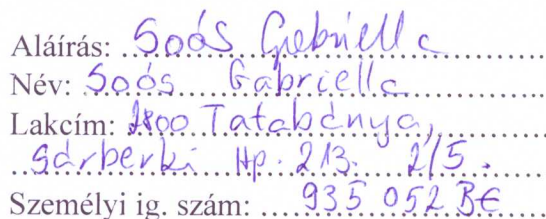 Aláírás: Soós Gabriella
Név: Soós Gabriella
Lakcím: 2800 Tatabánya,
Sárberki Hp. 213. 2/5.
Személyi ig. szám: 935 052 BE